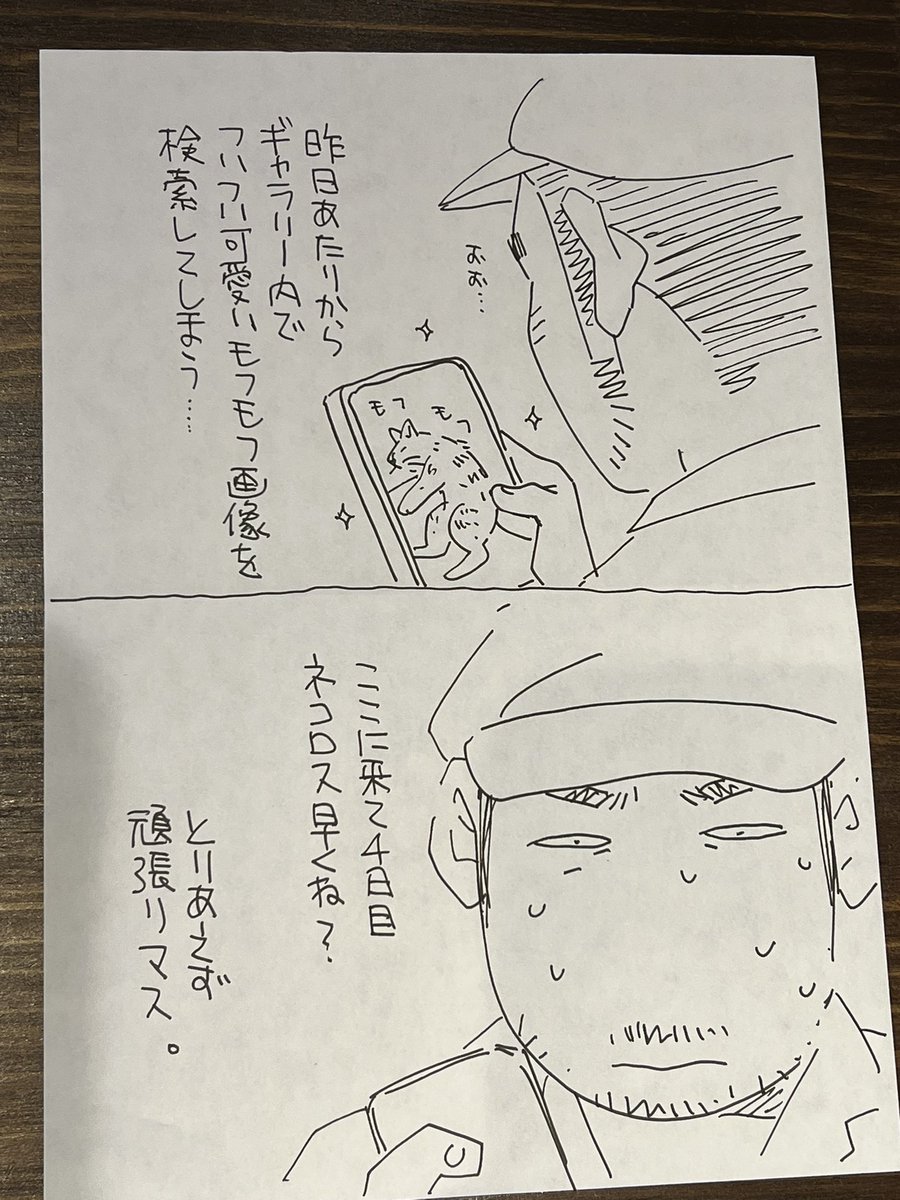 昨日あたりから
ギャラリー内で
ついつい可愛いモフモフ画像を
検索してしまう……
おお…
モフ モフ
ここに来て4日目
ネコロス早くね？
とりあえず
頑張リマス。